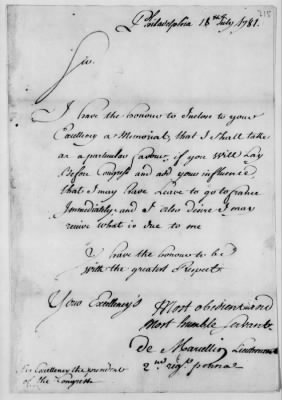 Philadelphia 18th July 1781.
215
Sir.
I have the honour to Inclose to your
Excellency a Memorial, that I Shall take
as a particular favour, if you Will Lay
Before Congress and add your influence,
that I may have Leave to go to france
Immediately, and I also desire I may
reçive what is due to me
I have the honour to be
With the greatest Respect
Your Excellency's
Most obedient and
Most humble Servent
de Marcellin Lieutenant
2nd regt penna
his Excellency the president
of the Congress